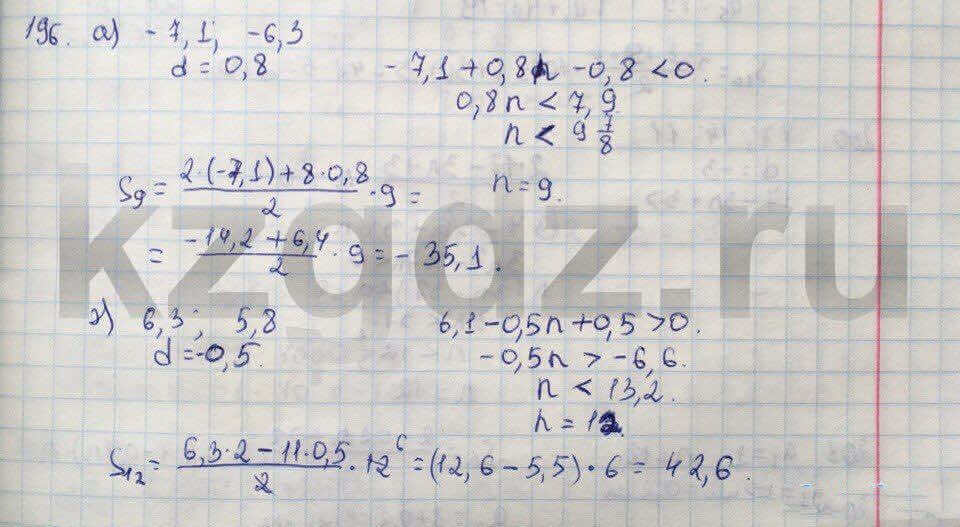 196. а) -7,1; -6,3
d = 0,8
-7,1 + 0,8n - 0,8 < 0.
0,8n < 7,9
n < 9 7/8
S9 = (2·(-7,1) + 8·0,8)/2 · 9 =
n = 9.
= (-14,2 + 6,4)/2 · 9 = - 35,1.
kzgdz.ru
б) 6,3; 5,8
d = -0,5.
6,1 - 0,5n + 0,5 > 0.
-0,5n > -6,6.
n < 13,2.
n = 12.
S12 = (6,3·2 - 11·0,5)/2 · 12 6 = (12,6 - 5,5) · 6 = 42,6.